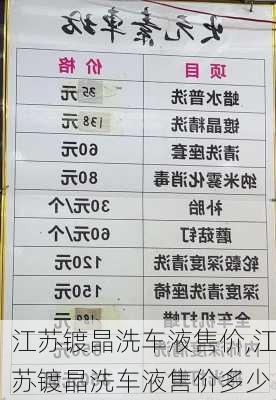 元素車坊
项目 价格
蜡水普洗 35元
镀晶精洗 138元
清洗座套 60元
纳米雾化消毒 80元
补胎 30元/个
蘑菇钉 60元/个
轮毂深度清洗 120元
深度清洗座椅 150元
全车机打蜡
江苏镀晶洗车液售价,江
苏镀晶洗车液售价多少